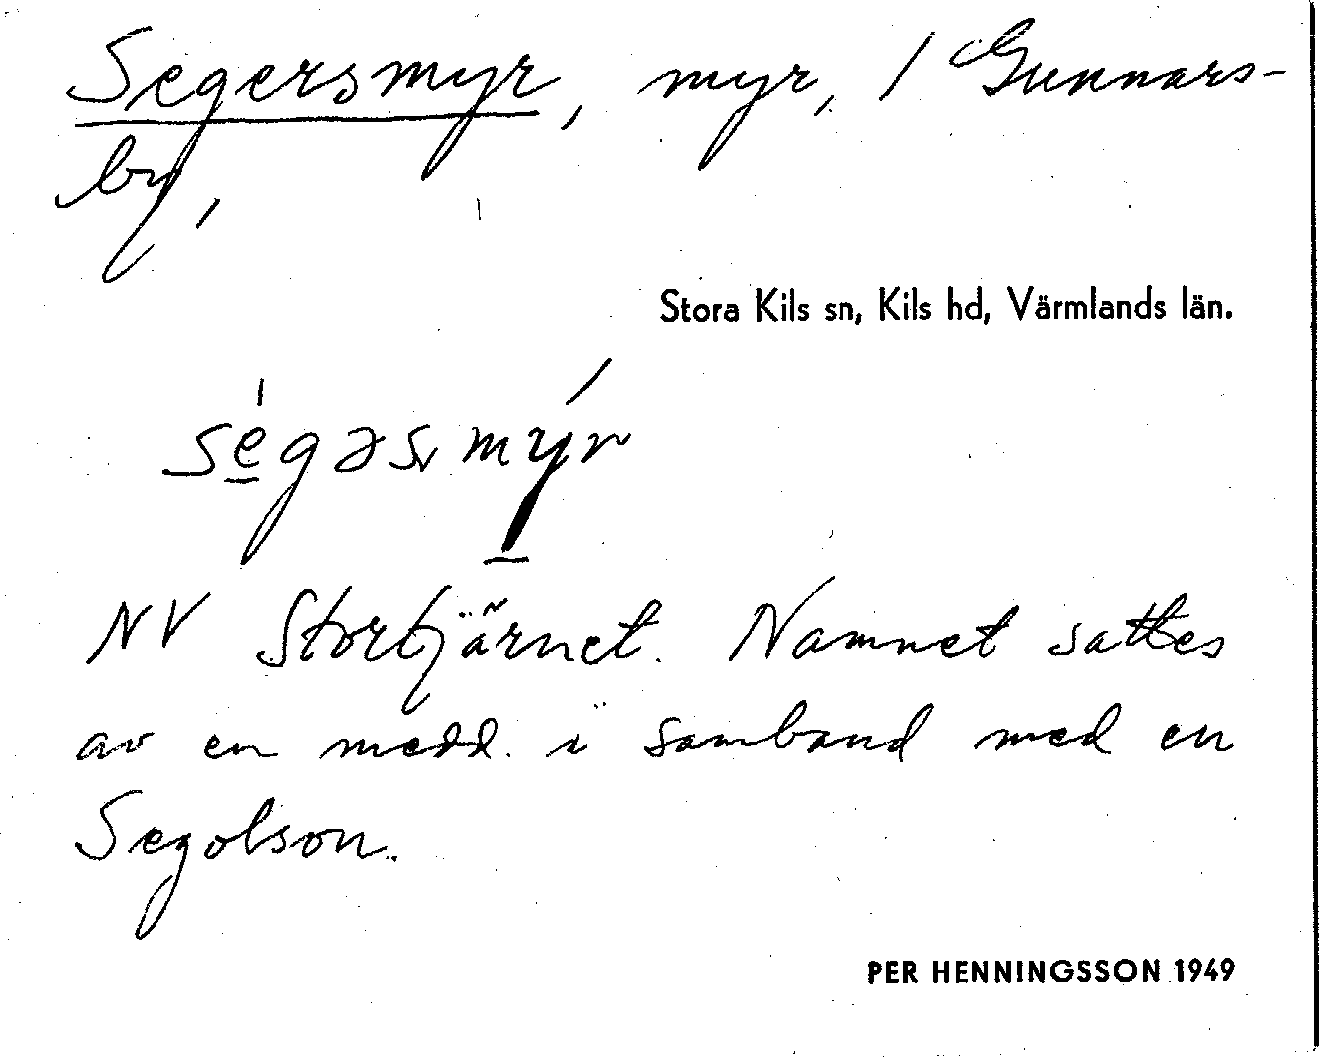 Segersmyr, myr, / Gunnars-
by,
Stora Kils sn, Kils hd, Värmlands län.
ségəsmýr
NV Stortjärnet. Namnet sattes
av en medd. i samband med en
Segolson.
PER HENNINGSSON 1949